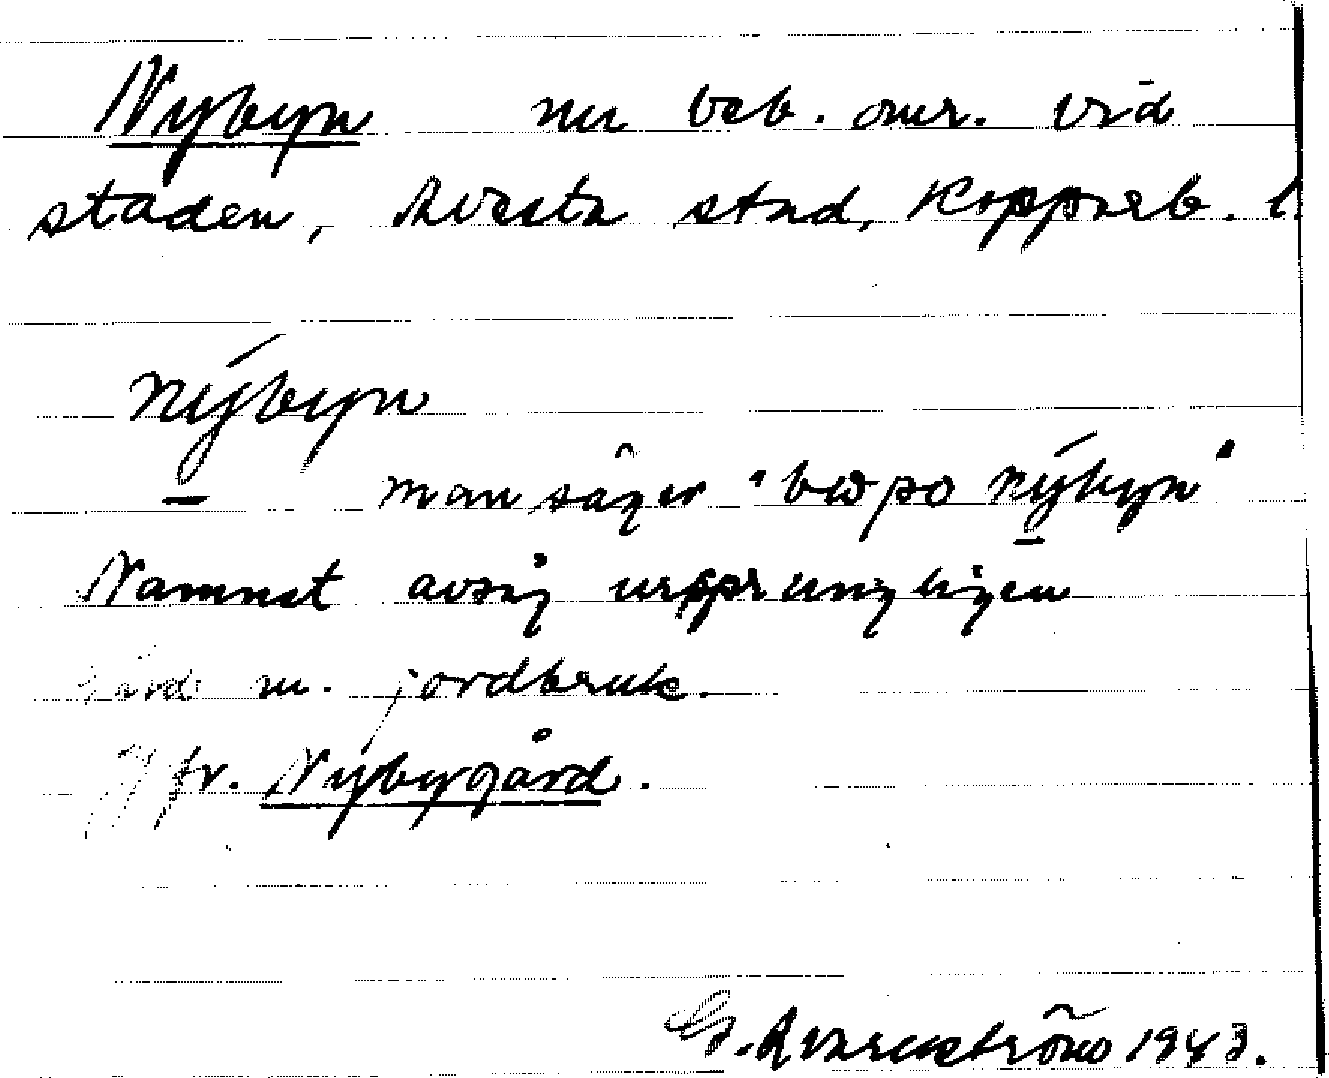 Nybyn nu beb. omr. vid
staden, Avesta stad, Kopparb. l.
nýbyn
man säger "boρo nýbyn"
Namnet avsåg ursprungligen
gård m. jordbruk.
Jfr. Nybygård.
G. 1943.